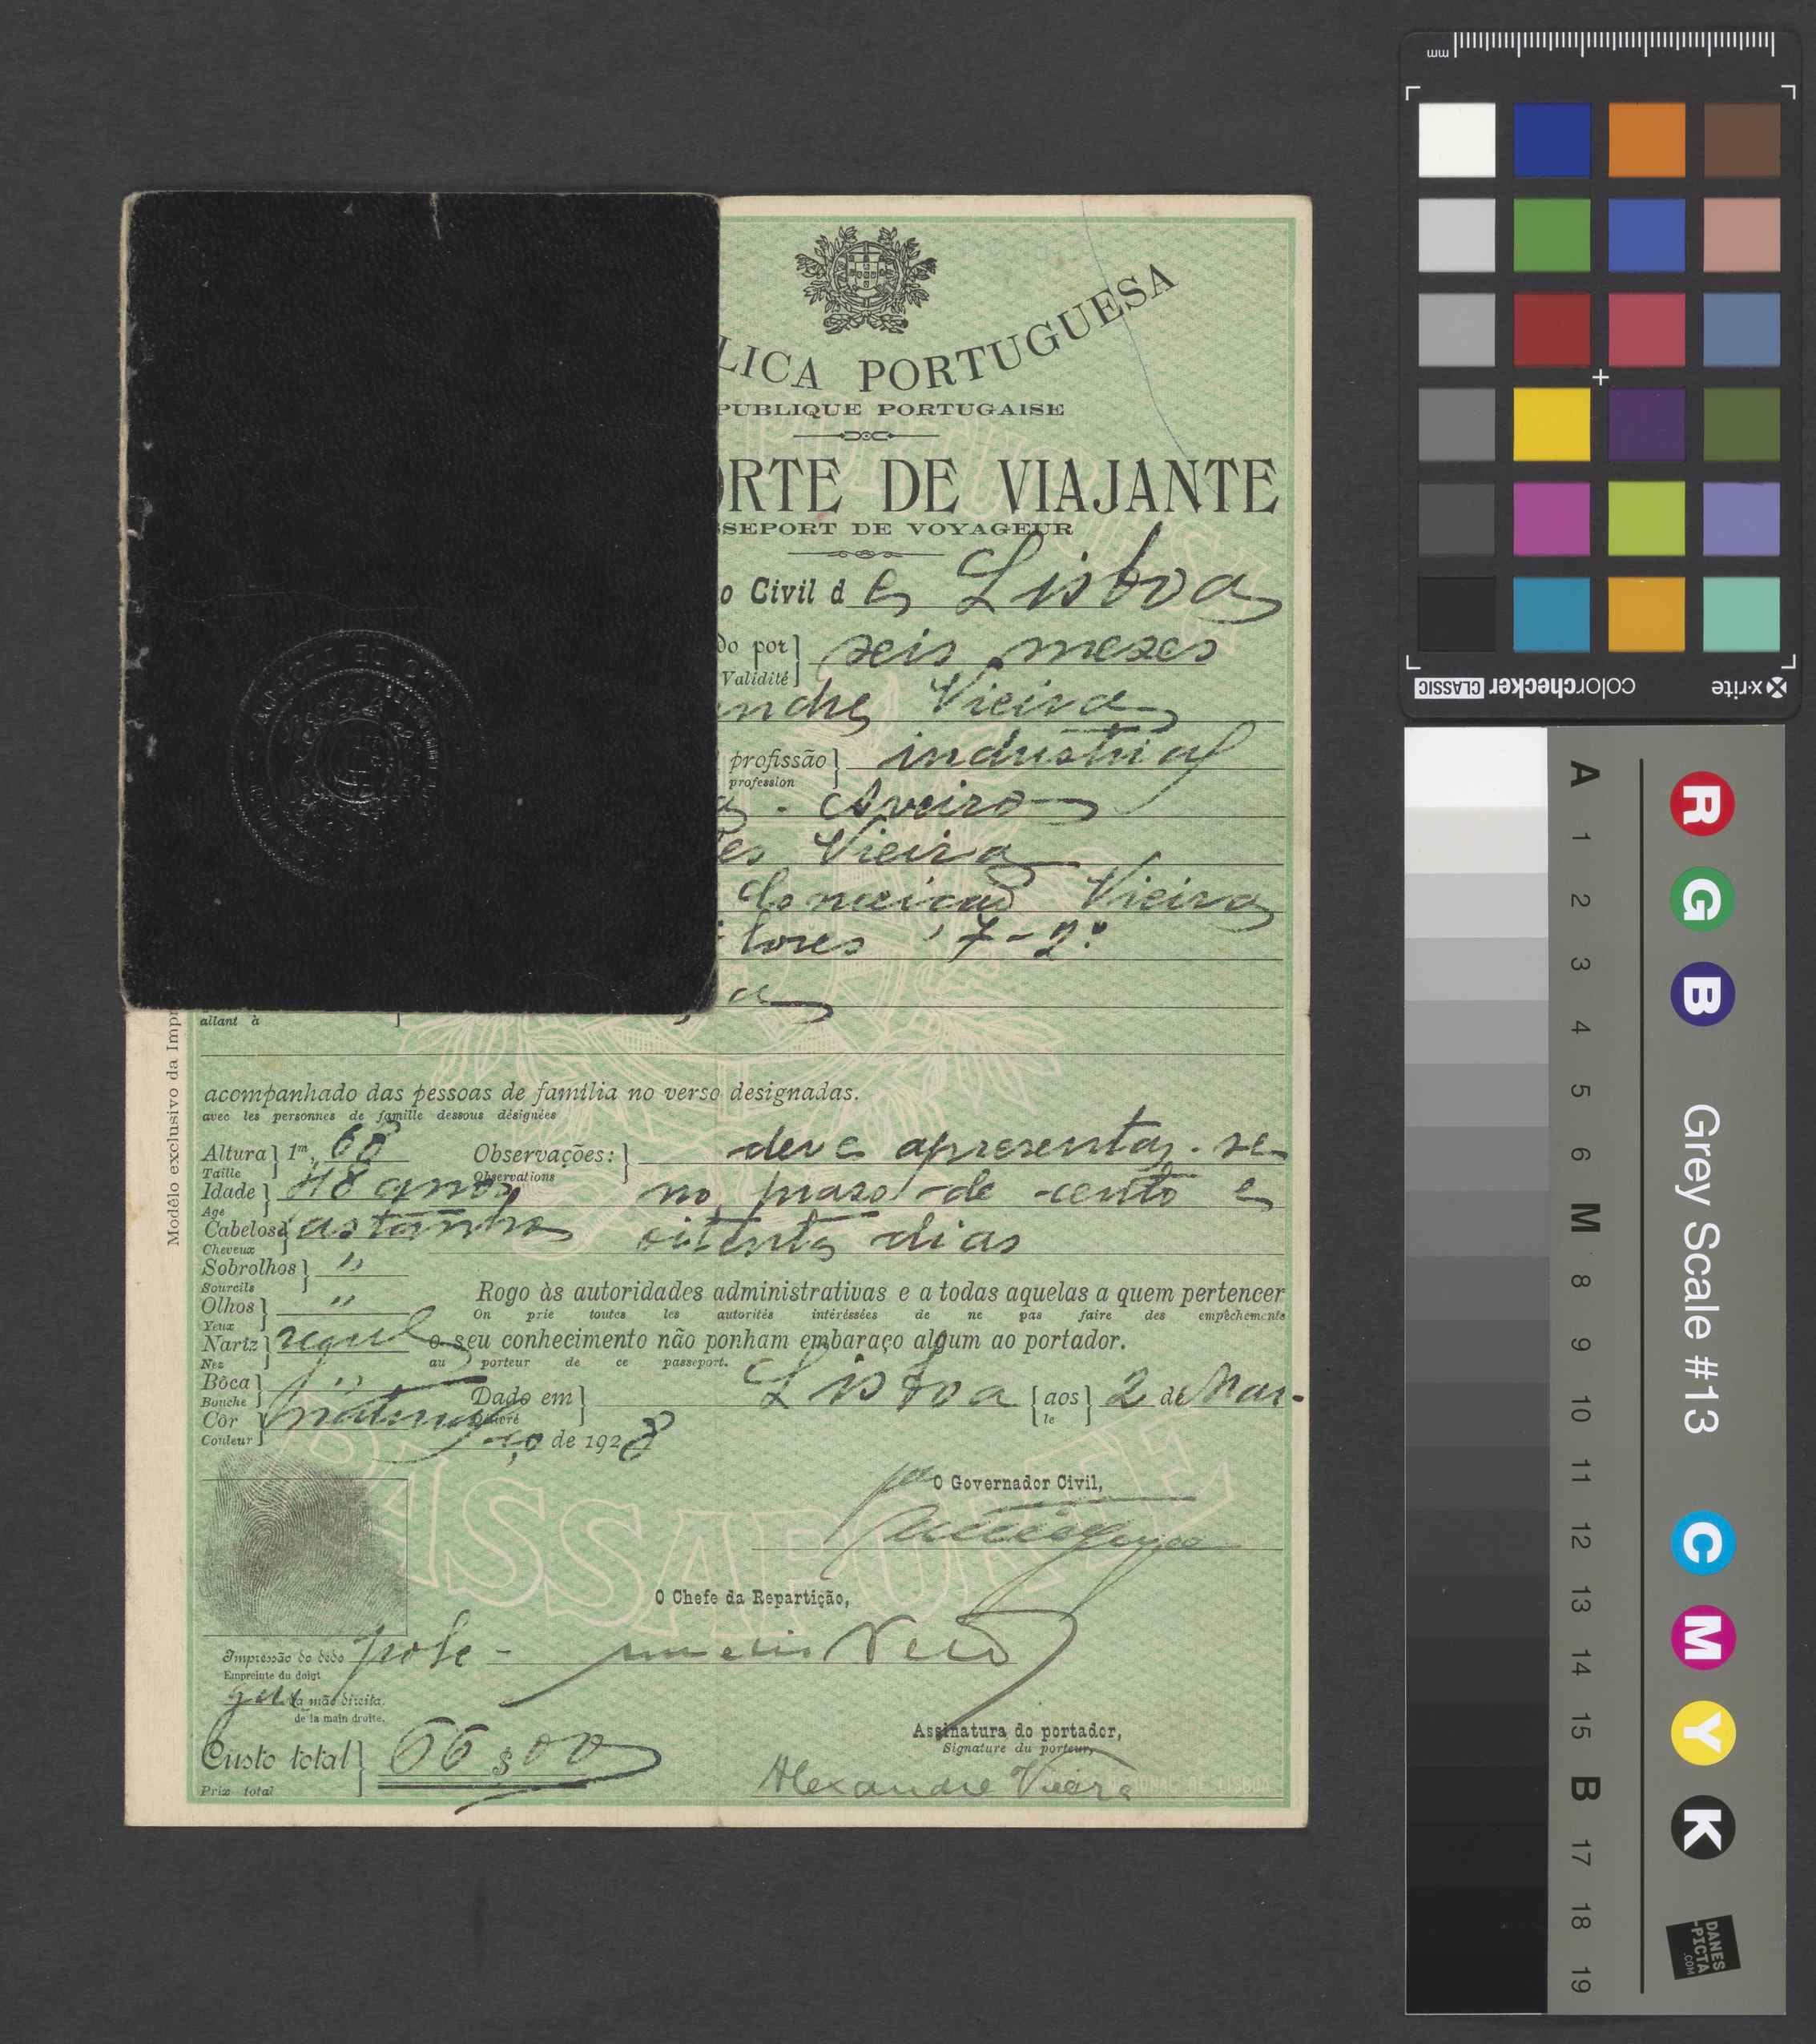 LICA PORTUGUESA
PUBLIQUE PORTUGAISE
ORTE DE VIAJANTE
SSEPORT DE VOYAGEUR
o Civil de Lisboa
do por seis mezes
Validité
andre Vieira
profissão industrial
profession
Aveiro
es Vieira
Conceicao Vieira
tores 7-2º
a
allant à
Modêlo exclusivo da Impr
acompanhado das pessoas de família no verso designadas.
avec les personnes de famille dessous désignées
Altura 1m, 68 Observações: deve apresentar-se
Taille Observations
Idade 48 anos no praso de cento e
Age
Cabelos castanho oitenta dias
Cheveux
Sobrolhos "
Sourcils
Rogo às autoridades administrativas e a todas aquelas a quem pertencer
Olhos "
On prie toutes les autorités intéréssées de ne pas faire des empêchements
Yeux
Nariz regul o seu conhecimento não ponham embaraço algum ao portador.
Nez au porteur de ce passeport.
Bôca "
Bouche
Dado em Lisboa aos 2 de Mar-
Délivré le
Côr natural
Couleur
ço de 1928
PASSAPORTE
O Governador Civil,
O Chefe da Repartição,
Impressão do dedo pole-
Empreinte du doigt
gar da mão direita.
de la main droite.
Custo total 66$00
Prix total
Assinatura do portador,
Signature du porteur,
Alexandre Vieira
mm
x-rite colorchecker CLASSIC
R G B Grey Scale #13 C M Y K
A 1 2 3 4 5 6 M 8 9 10 11 12 13 14 15 B 17 18 19
DANES
-PICTA
.COM